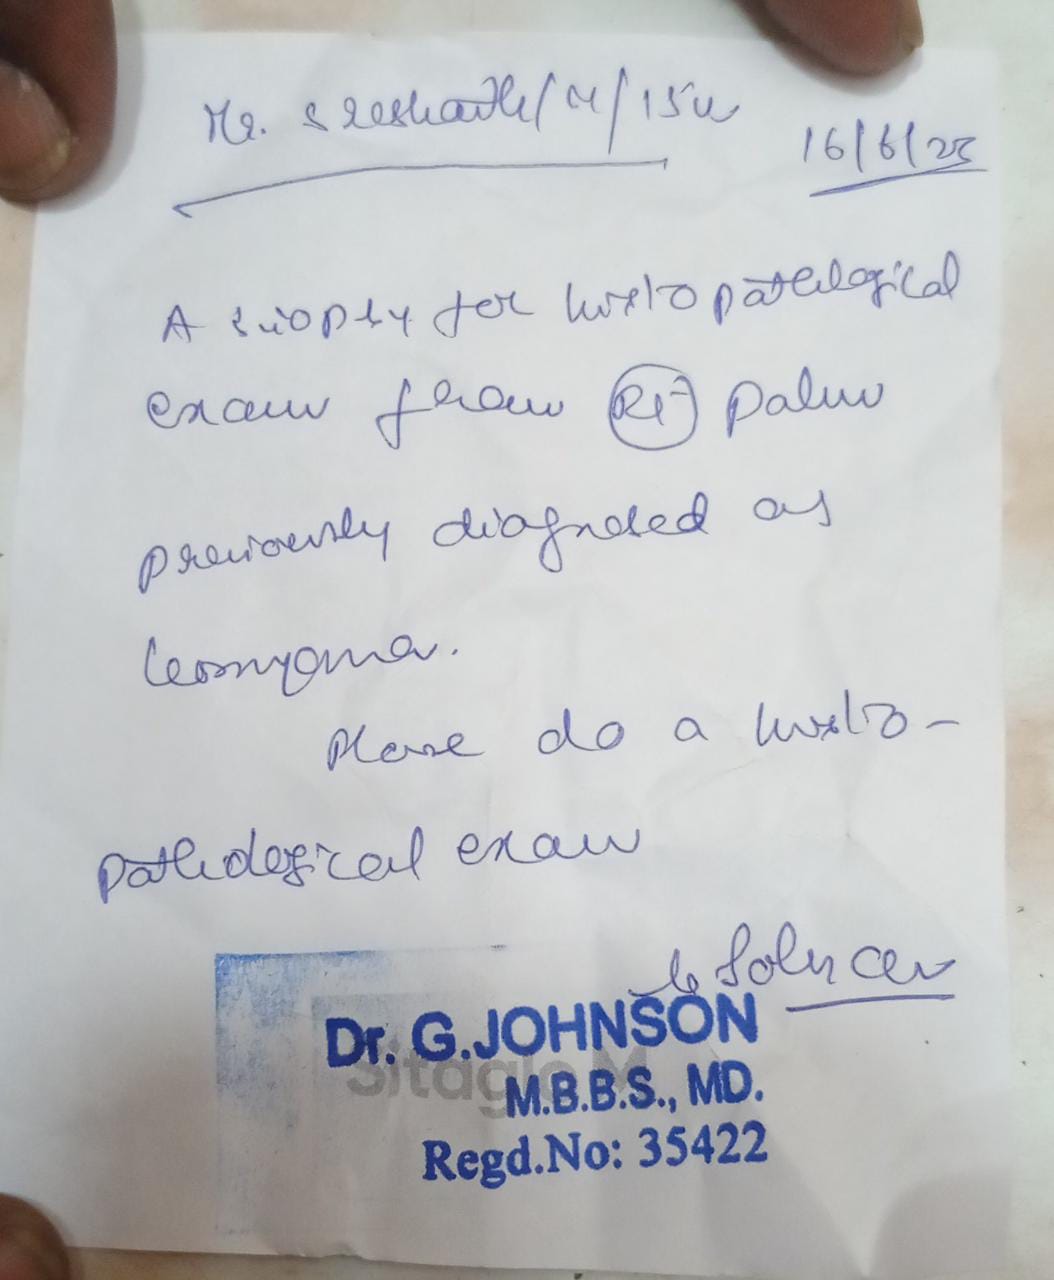 Mr. Sreshanth/M/15y
16/6/25
A biopsy for histopathological
exam from Rt Palm
previously diagnosed as
leomyoma.
Please do a histo-
pathological exam
G Johnson
Dr. G.JOHNSON
M.B.B.S., MD.
Regd.No: 35422